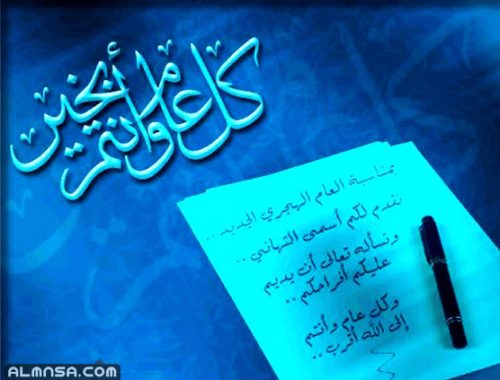 كل عام وأنتم بخير
بمناسبة العام الهجري الجديد..
نقدم لكم أسمى التهاني..
ونسأله تعالى أن يديم
عليكم أفراحكم..
وكل عام وأنتم
إلى الله أقرب..
ALMNSA.COM